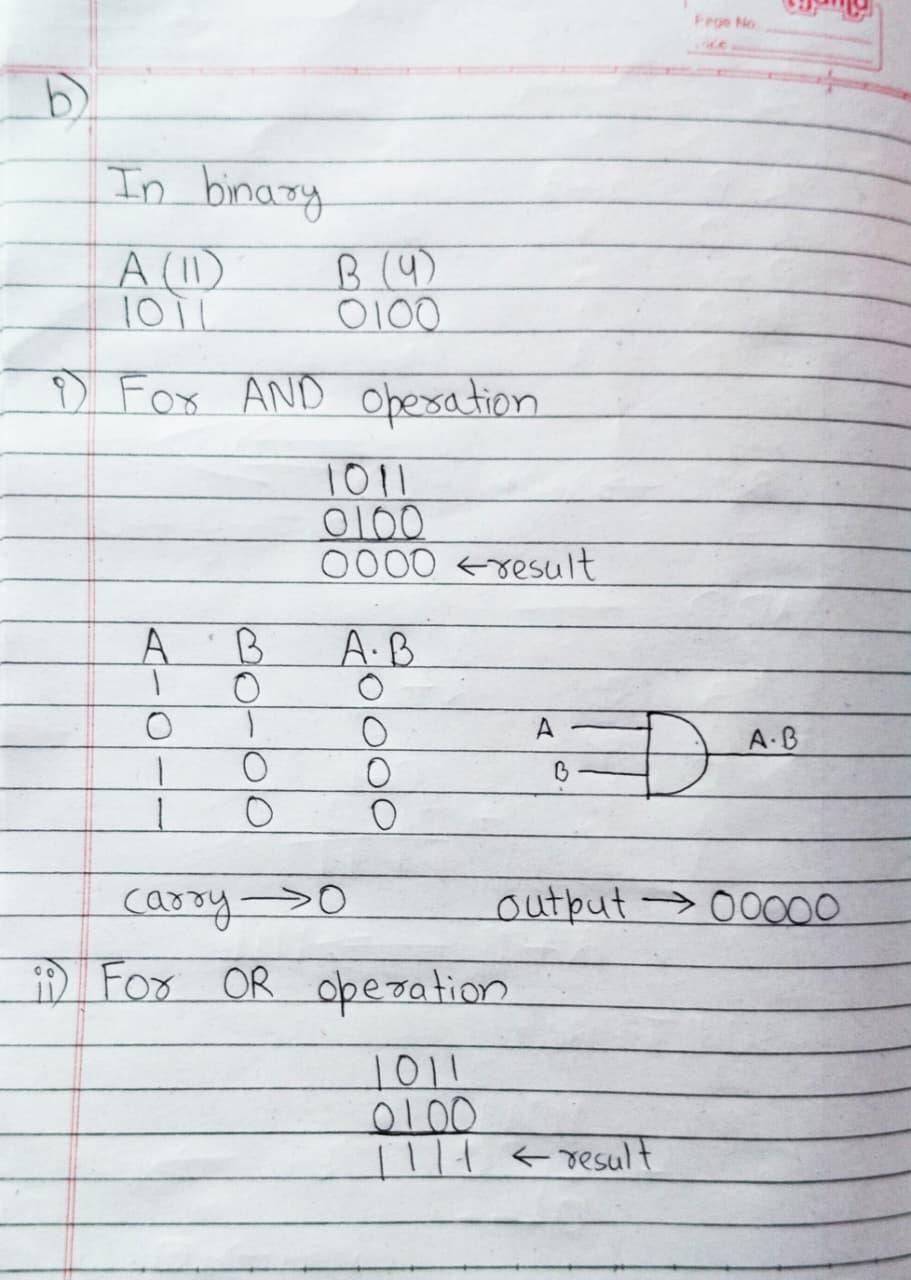 Page No.
b)
In binary
A (11) B (4)
1011 0100
i) For AND operation
1011
0100
0000 ←result
A B A·B
1 0 0
0 1 0
1 0 0
1 0 0
A
B
A·B
carry →0 output → 00000
ii) For OR operation
1011
0100
1111 ← result